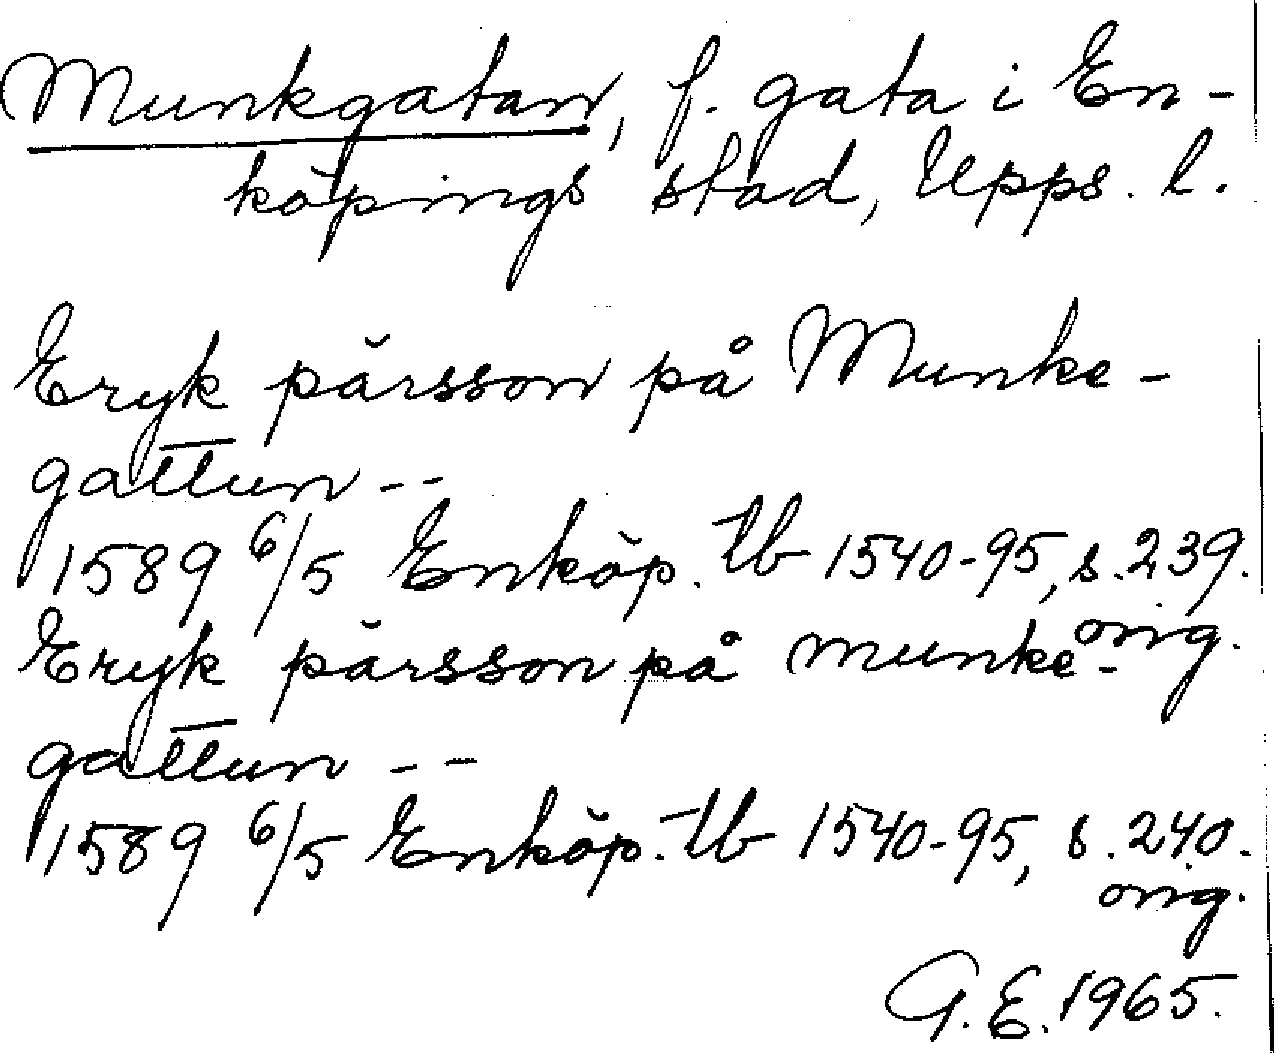 Munkgatan, f. gata i En-
köpings stad, Upps. l.
Eryk pärsson på Munke-
gattun --
1589 6/5 Enköp. tb 1540-95, s. 239.
orig.
Eryk pärsson på munke-
gattun --
1589 6/5 Enköp. tb 1540-95, s. 240.
orig.
G. E. 1965.